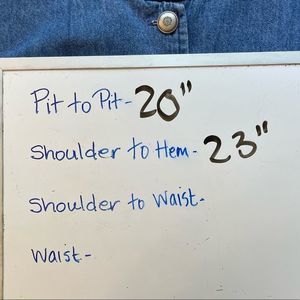 Pit to Pit- 20"
Shoulder to Hem- 23"
Shoulder to Waist-
Waist-